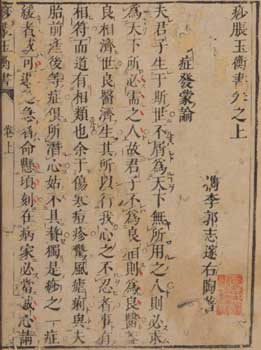 痧脹玉衡書卷之上
檇李郭志邃右陶著
症發蒙論
夫君子生于斯世不屑為天下無所用之人則必求
為天下所必需之人故君子不為良相則為良醫蓋
良相濟世良醫濟生其所以行我心之不忍者事有
相符而道有相類也余于傷寒痘疹驚風瘧痢與夫
胎前產後等症俱所潛心姑不具贅獨是痧之一症
緩者或可遲延急者命懸頃刻在病家必當誠心請
痧脹玉衡書
卷上